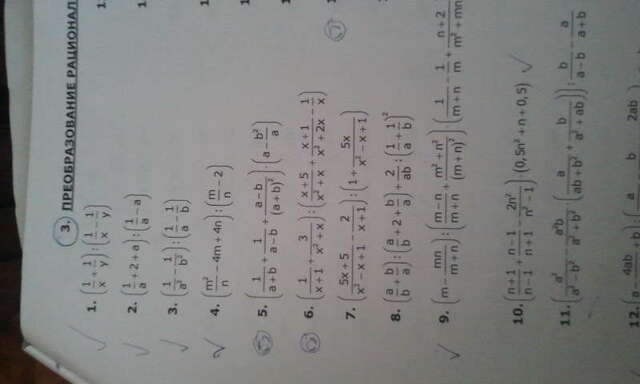 3. ПРЕОБРАЗОВАНИЕ РАЦИОНАЛ
1. (1/x + 1/y) : (1/x − 1/y)
2. (1/a + 2 + a) : (1/a − a)
3. (1/a² − 1/b²) : (1/a − 1/b)
4. (m²/n − 4m + 4n) : (m/n − 2)
5. (1/(a+b) + 1/(a−b) + (a−b)/(a+b)²) · (a − b²/a)
6. (1/(x+1) + 3/(x²+x)) : ((x+5)/(x²+x) + (x+1)/(x²+2x) − 1/x)
7. ((5x+5)/(x²−x+1) − 2/(x+1)) : (1 + 5x/(x²−x+1))
8. (a/b + b/a) : (a/b + 2 + b/a) + 2/ab : (1/a + 1/b)²
9. (m − mn/(m+n)) : ((m−n)/(m+n) + (m²+n²)/(m+n)²) · (1/(m+n) − 1/m + (n+2)/(m²+mn
10. ((n+1)/(n−1) + (n−1)/(n+1) − 2n²/(n²−1)) · (0,5n² + n + 0,5)
11. (a²/(a²−b²) − a²b/(a²+b²) · (a/(ab+b²) + b/(a²+ab))) : b/(a−b) − a/(a+b)
12. (a − 4ab + b) : (a b 2ab)